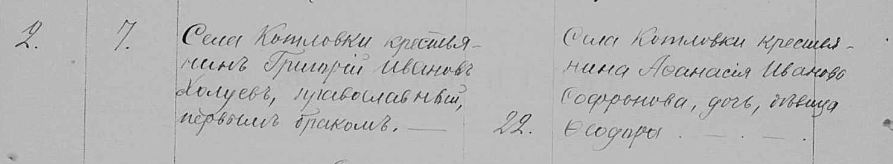 2. 7. Села Котловки крестья- Села Котловки крестья-
нинъ Григорій Ивановъ нина Аѳанасія Иванова
Холуевъ, православный, Софронова, дочь, дѣвица
первымъ бракомъ. — 22. Ѳеодора